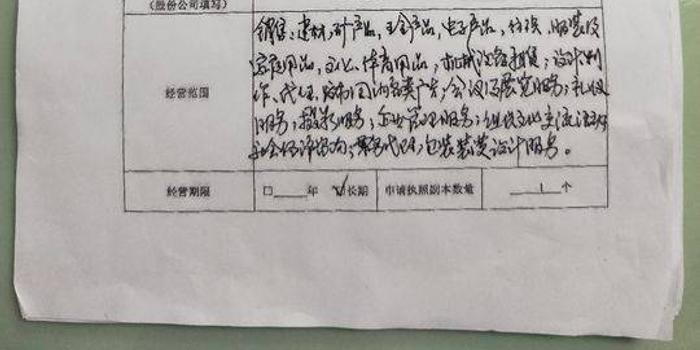 (股份公司填写)
经营范围
销售：建材，矿产品，五金产品，电子产品，纺织，服装及
家庭用品，文化、体育用品，机械设备租赁；设计、制
作、代理、发布国内各类广告；会议及展览服务；礼仪
服务；摄影服务；企业管理服务；组织文化交流活动
；票务代理；包装装潢设计服务。
经营期限 □ 年 ☑长期 申请执照副本数量 1 个